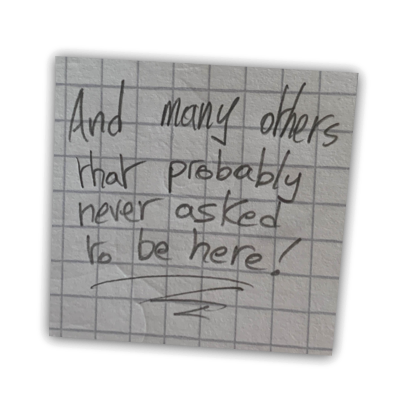 And many others
that probably
never asked
to be here!